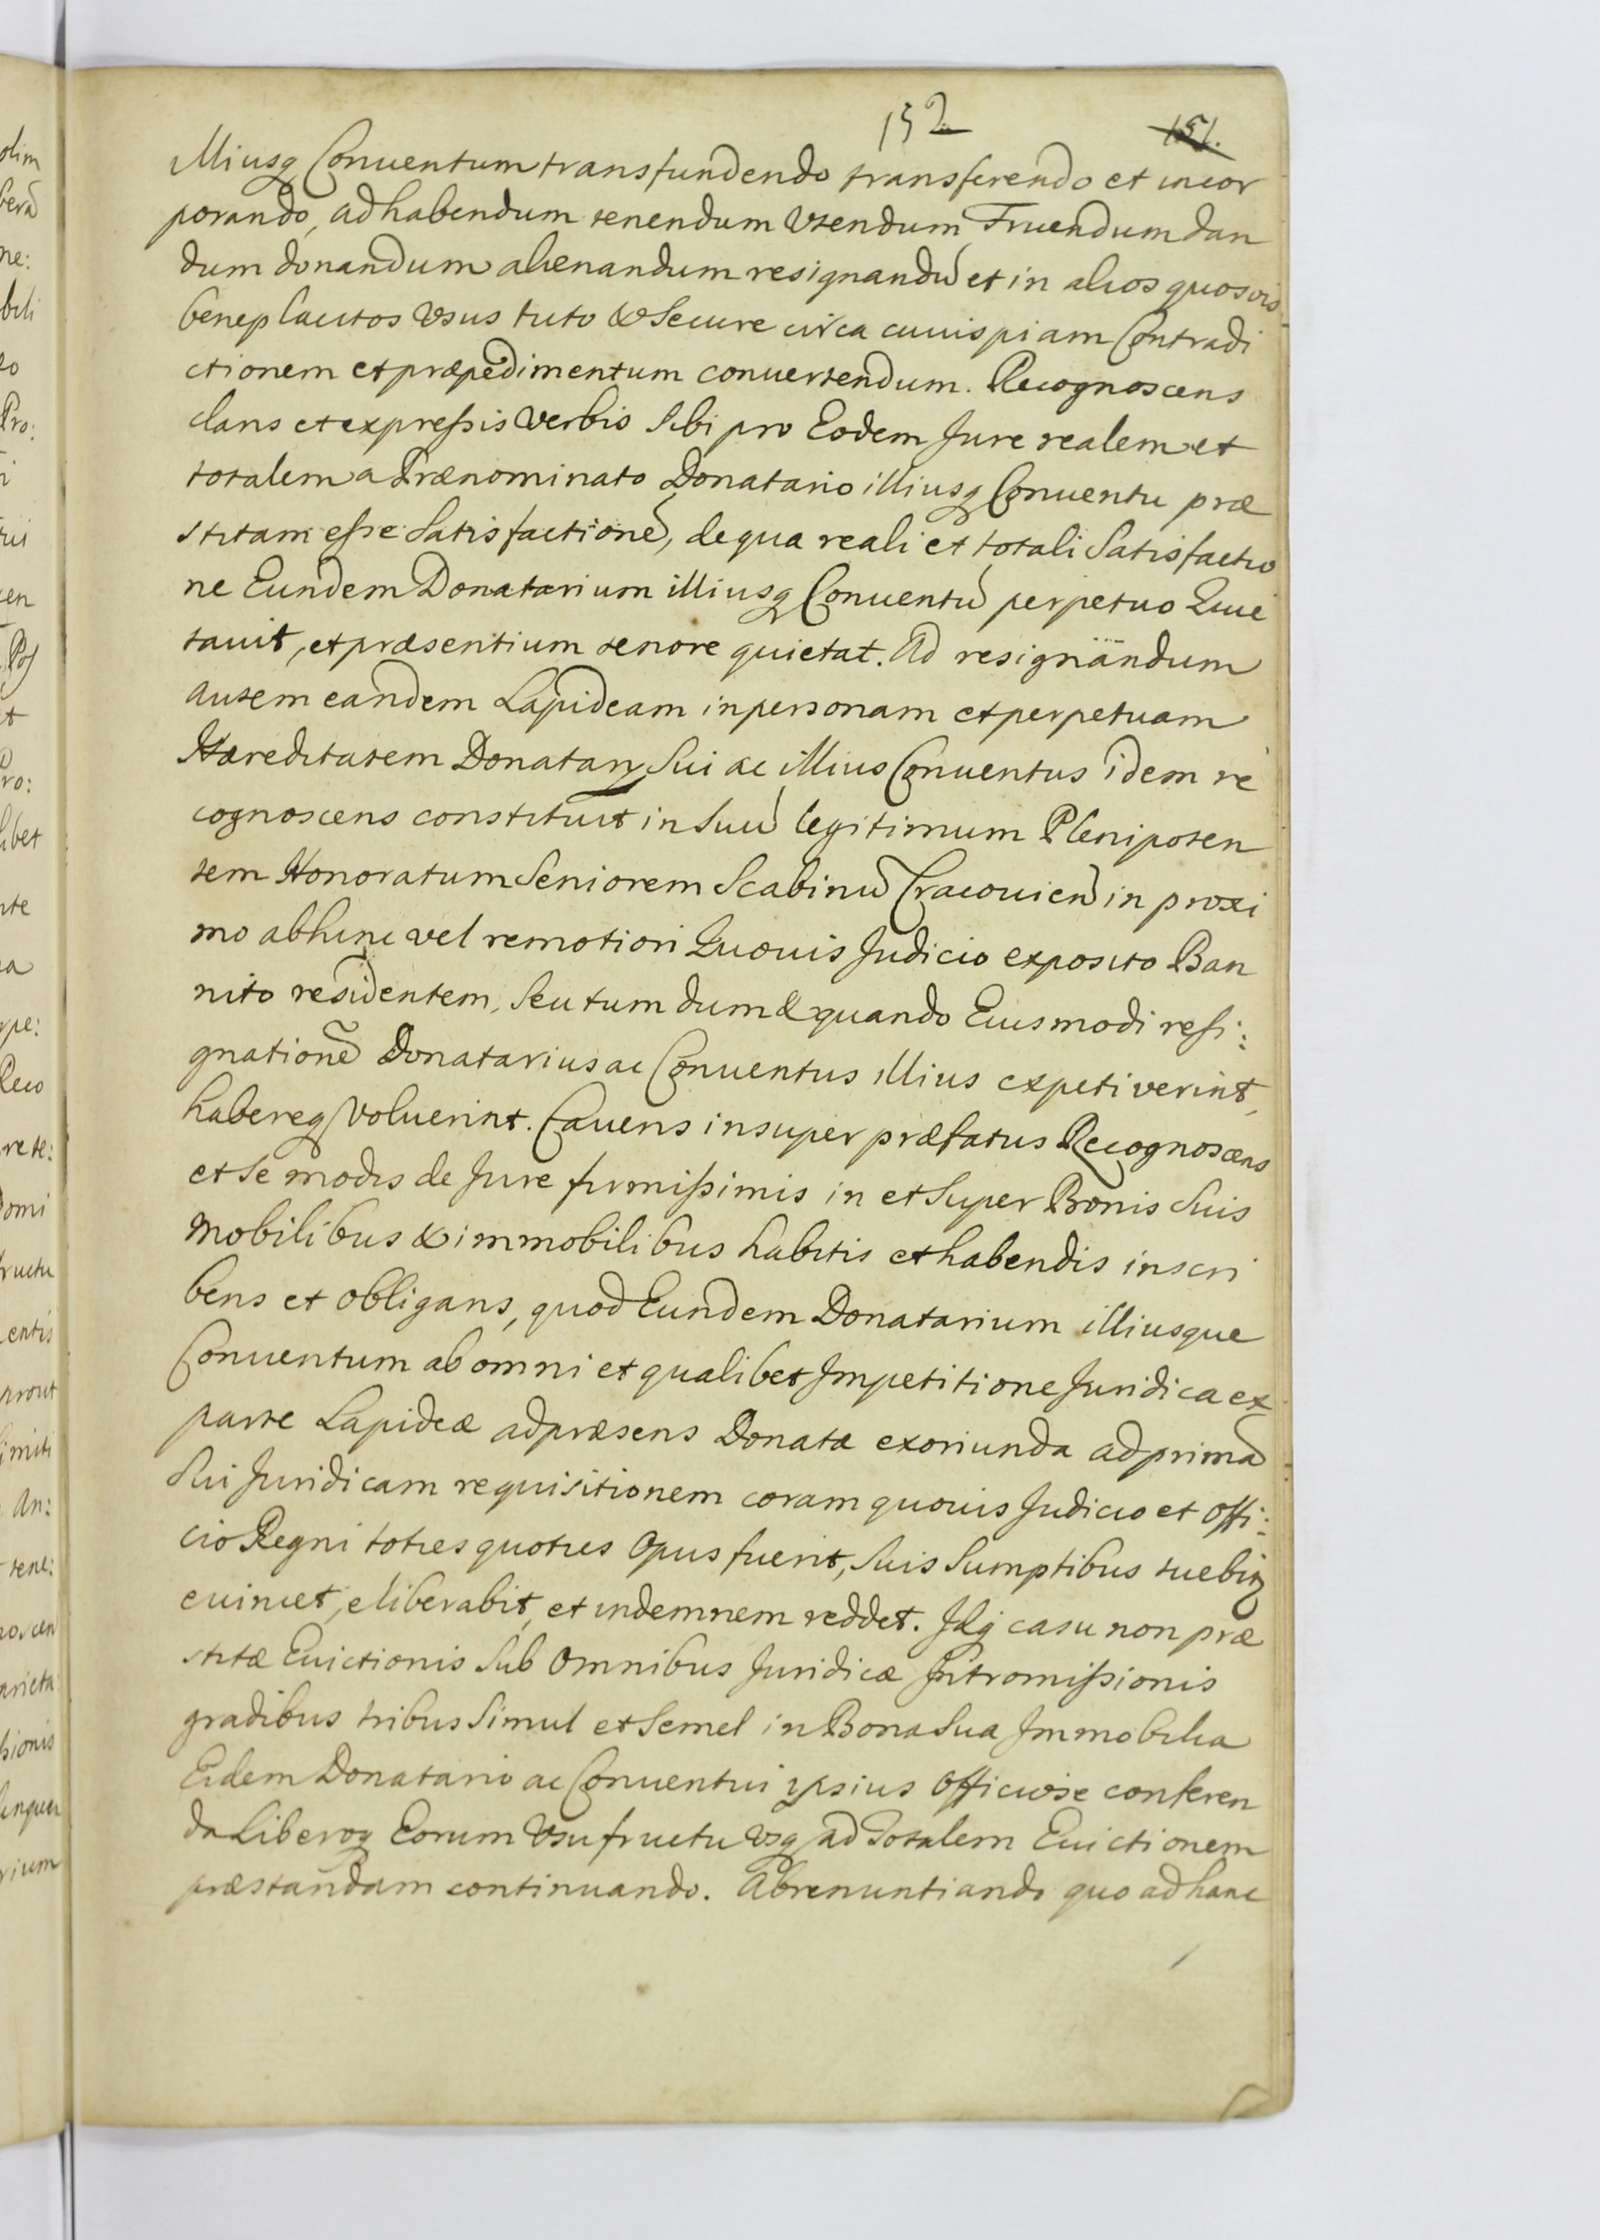 152 151.
illiusq Conuentum transfundendo transferendo et incor
porando, ad habendum tenendum Vtendum Fruendum dan
dum donandum alienandum resignandũ et in alios quosvis
beneplacitos Vsus tuto & Secure circa cuiuispiam Contradi
ctionem et præpedimentum conuertendum. Recognoscens
clans et expressis Verbis Sibi pro Eodem Jure realem et
totalem a Prænominato Donatario illiusq Conuentu præ
stitam esse Satisfactionẽ, de qua reali et totali Satisfactio
ne Eundem Donatarium illiusq Conuentũ perpetuo Quie
tauit, et præsentium tenore quietat. Ad resignandum
autem eandem Lapideam in personam et perpetuam
Hæreditatem Donatarij Sui ac illius Conuentus idem re
cognoscens constituit in Suũ legitimum Plenipoten
tem Honoratum Seniorem Scabinũ Cracouień in proxi
mo abhinc vel remotiori Quouis Judicio exposito Ban
nito residentem, Seu tum dum & quando Eiusmodi resi:
gnationẽ Donatarius ac Conuentus illius expetiverint,
habereq Voluerint. Cauens insuper præfatus Recognoscens
et Se modis de Jure firmissimis in et Super Bonis Suis
Mobilibus & immobilibus habitis et habendis inscri
bens et obligans, quod Eundem Donatarium illiusque
Conuentum ab omni et qualibet Impetitione Juridica ex
parte Lapideæ ad præsens Donatæ exoriunda ad primã
Sui Juridicam requisitionem coram quouis Judicio et Offi:
cio Regni toties quoties Opus fuerit, Suis Sumptibus tuebitq
euincet, eliberabit, et indemnem reddet. Idq casu non præ
stitæ Euictionis Sub Omnibus Juridicæ Intromissionis
gradibus tribus Simul et Semel in Bona Sua Immobilia
Eidem Donatario ac Conuentui ipsius Officiose conferen
da Liberoq Eorum Vsufructu Vsq ad Totalem Euictionem
præstandam continuando. Abrenuntiando quo ad hanc